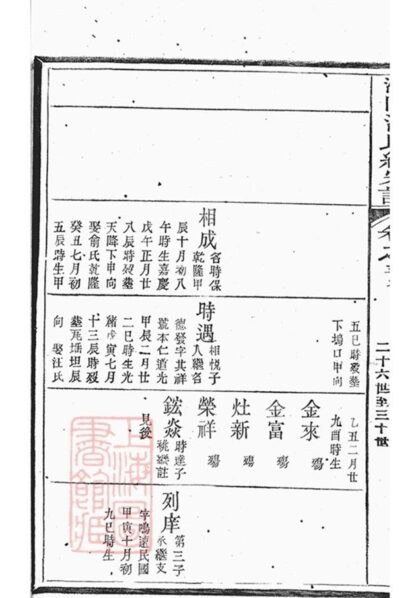 二十六世至三十世
五巳時歿塟
下塢口甲向
乙丑二月廿
九酉時生
金來 殤
金富 殤
灶新 殤
榮祥 殤
鋐焱 時達子
祧繼註
見後
列庠 第三子
承繼支
字鳴遠民國
甲寅十月初
九巳時生
時遇 相悅子
入繼名
德發字其祥
號本仁道光
甲辰二月廿
二巳時生光
緒戊寅七月
十三辰時歿
塟瓦塔坦辰
向 娶汪氏
相成 名時保
乾隆甲
辰十月初八
午時生嘉慶
戊午正月廿
八辰時歿塟
天降下申向
娶俞氏乾隆
癸丑七月初
五辰時生甲
上海圖書館藏